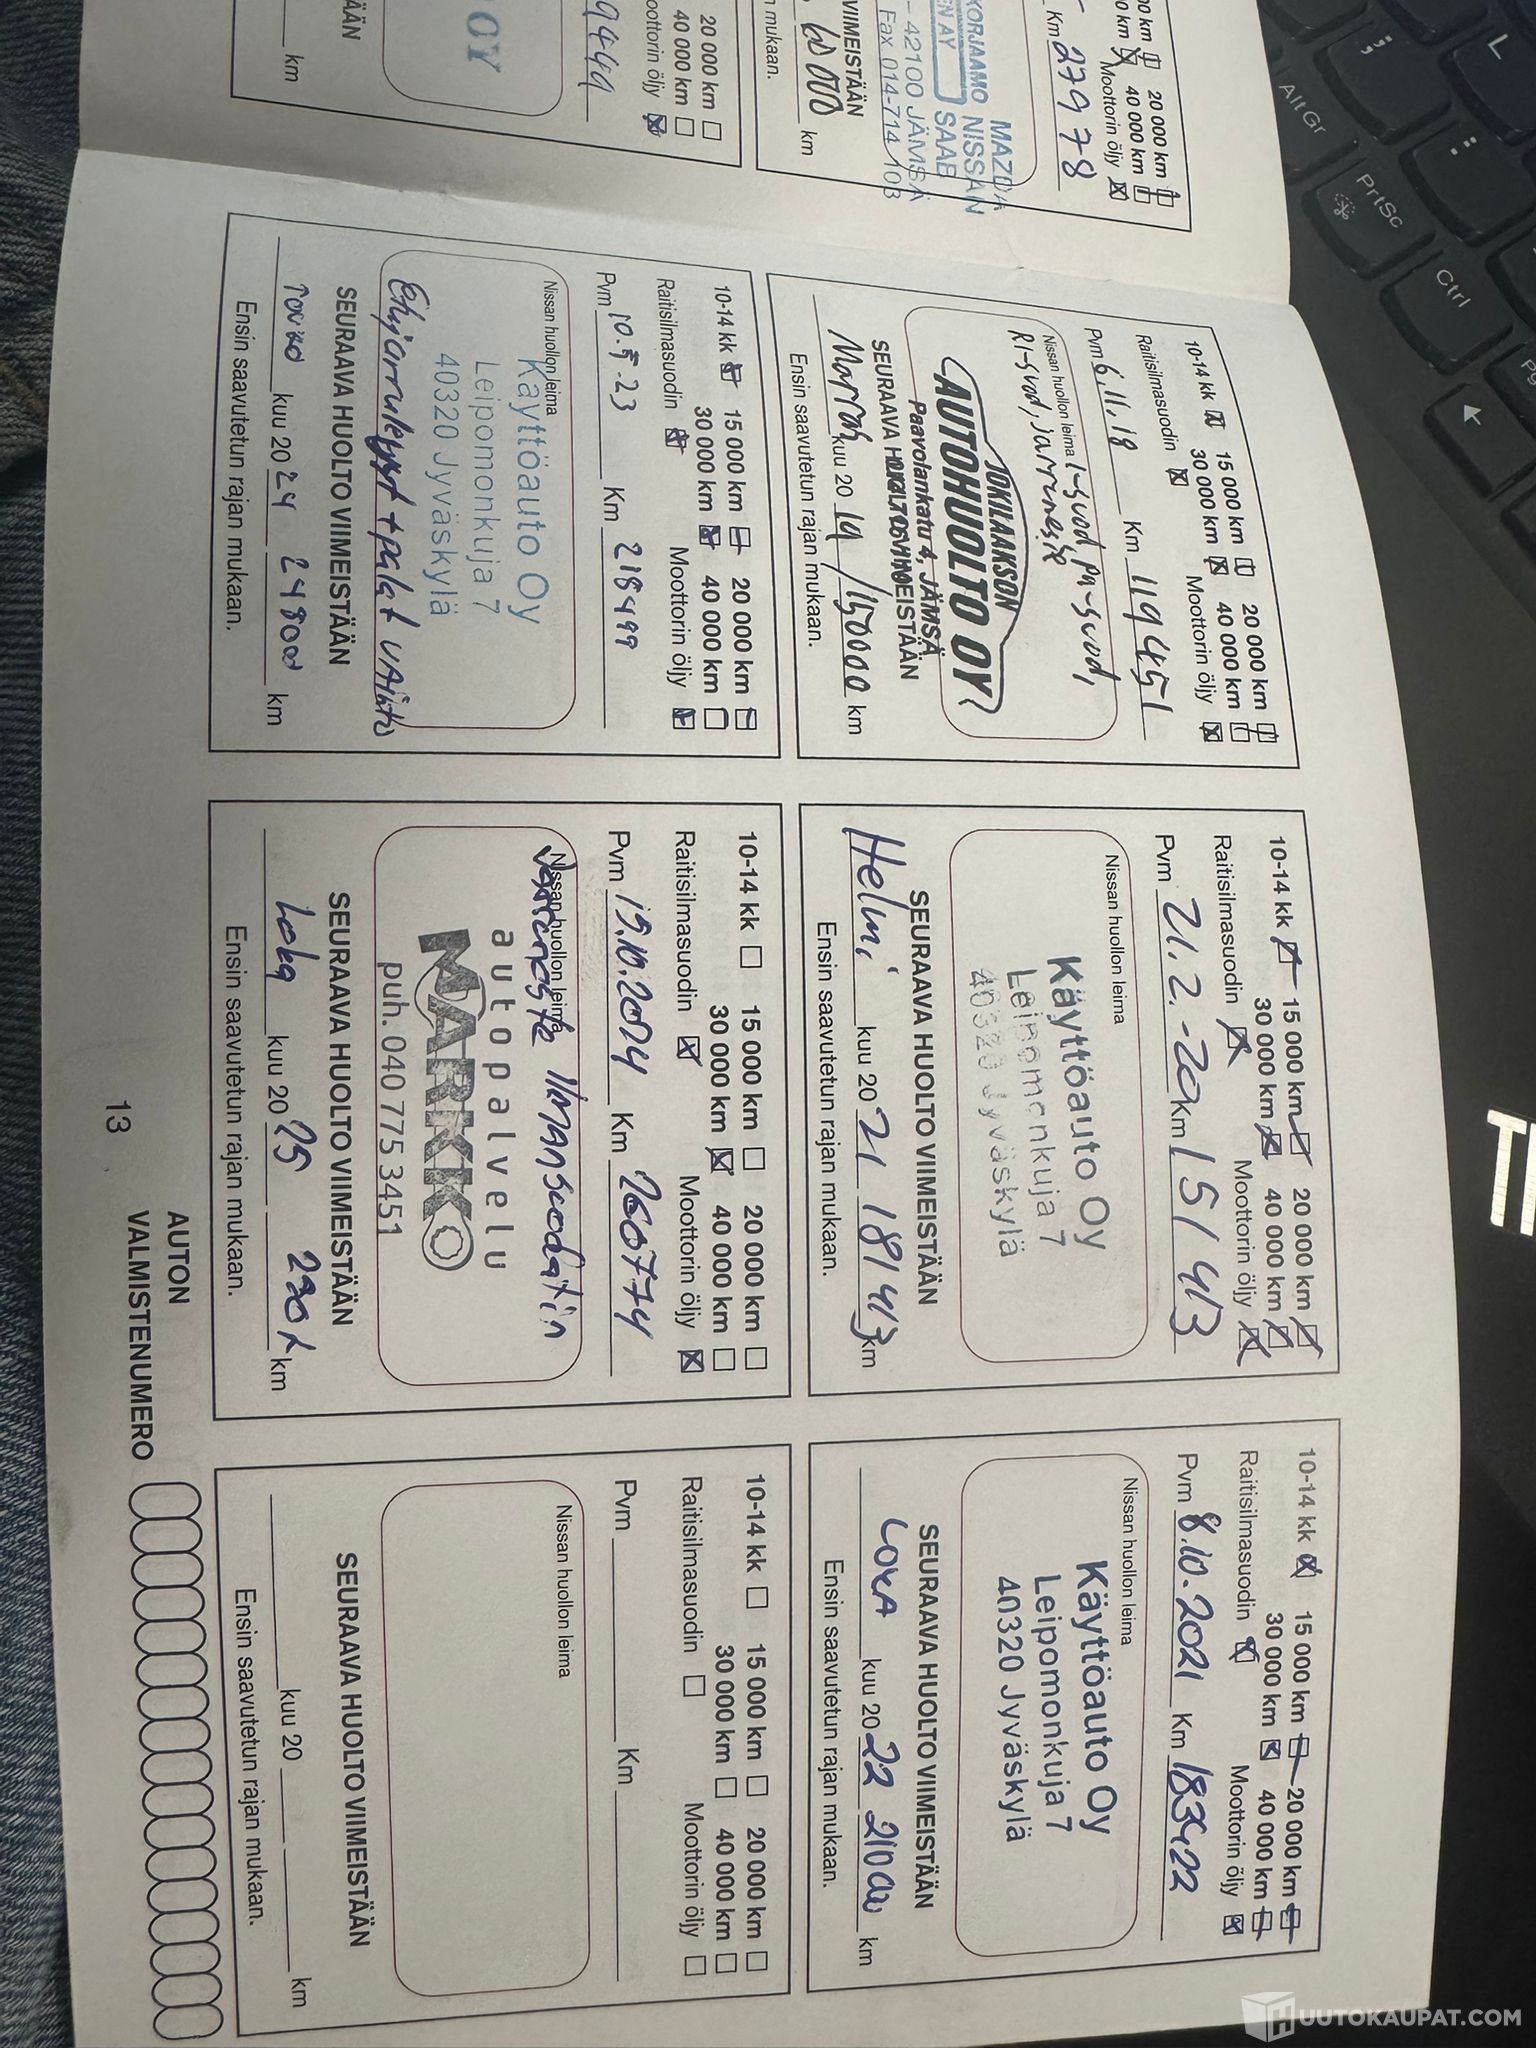 20 000 km
40 000 km
Moottorin öljy
Km 27978
MAZDA
KORJAAMO NISSAN
SAAB
42100 JÄMSÄ
Fax 014-714 103
VIIMEISTÄÄN
km
n mukaan.
20 000 km
40 000 km
oottorin öljy
OY
ÄÄN
km
10-14 kk 15 000 km 20 000 km
30 000 km 40 000 km
Raitisilmasuodin Moottorin öljy
Pvm 6.11.18 Km 119451
Nissan huollon leima
jarruneste
JOKILAAKSON
AUTOHUOLTO OY
Paavolankatu 4, JÄMSÄ
SEURAAVA HUOLTO VIIMEISTÄÄN
Marras kuu 20 19 / 150000 km
Ensin saavutetun rajan mukaan.
10-14 kk 15 000 km 20 000 km
30 000 km 40 000 km
Raitisilmasuodin Moottorin öljy
Pvm 21.2.-20 Km 151413
Nissan huollon leima
Käyttöauto Oy
Leipomonkuja 7
40320 Jyväskylä
SEURAAVA HUOLTO VIIMEISTÄÄN
Helmi kuu 20 21 181413 km
Ensin saavutetun rajan mukaan.
10-14 kk 15 000 km 20 000 km
30 000 km 40 000 km
Raitisilmasuodin Moottorin öljy
Pvm 8.10.2021 Km 183422
Nissan huollon leima
Käyttöauto Oy
Leipomonkuja 7
40320 Jyväskylä
SEURAAVA HUOLTO VIIMEISTÄÄN
LOKA kuu 20 22 210000 km
Ensin saavutetun rajan mukaan.
10-14 kk 15 000 km 20 000 km
30 000 km 40 000 km
Raitisilmasuodin Moottorin öljy
Pvm 10.5.23 Km 218499
Nissan huollon leima
Käyttöauto Oy
Leipomonkuja 7
40320 Jyväskylä
+ palat
SEURAAVA HUOLTO VIIMEISTÄÄN
kuu 20 24 248000 km
Ensin saavutetun rajan mukaan.
10-14 kk 15 000 km 20 000 km
30 000 km 40 000 km
Raitisilmasuodin Moottorin öljy
Pvm 19.10.2024 Km 260774
Nissan huollon leima
Jarruneste Ilmansuodatin
autopalvelu
MARKKO
puh. 040 775 3451
SEURAAVA HUOLTO VIIMEISTÄÄN
Loka kuu 20 25 km
Ensin saavutetun rajan mukaan.
10-14 kk 15 000 km 20 000 km
30 000 km 40 000 km
Raitisilmasuodin Moottorin öljy
Pvm Km
Nissan huollon leima
SEURAAVA HUOLTO VIIMEISTÄÄN
kuu 20 km
Ensin saavutetun rajan mukaan.
13
AUTON
VALMISTENUMERO
AltGr
PrtSc
Ctrl
L
HUUTOKAUPAT.COM